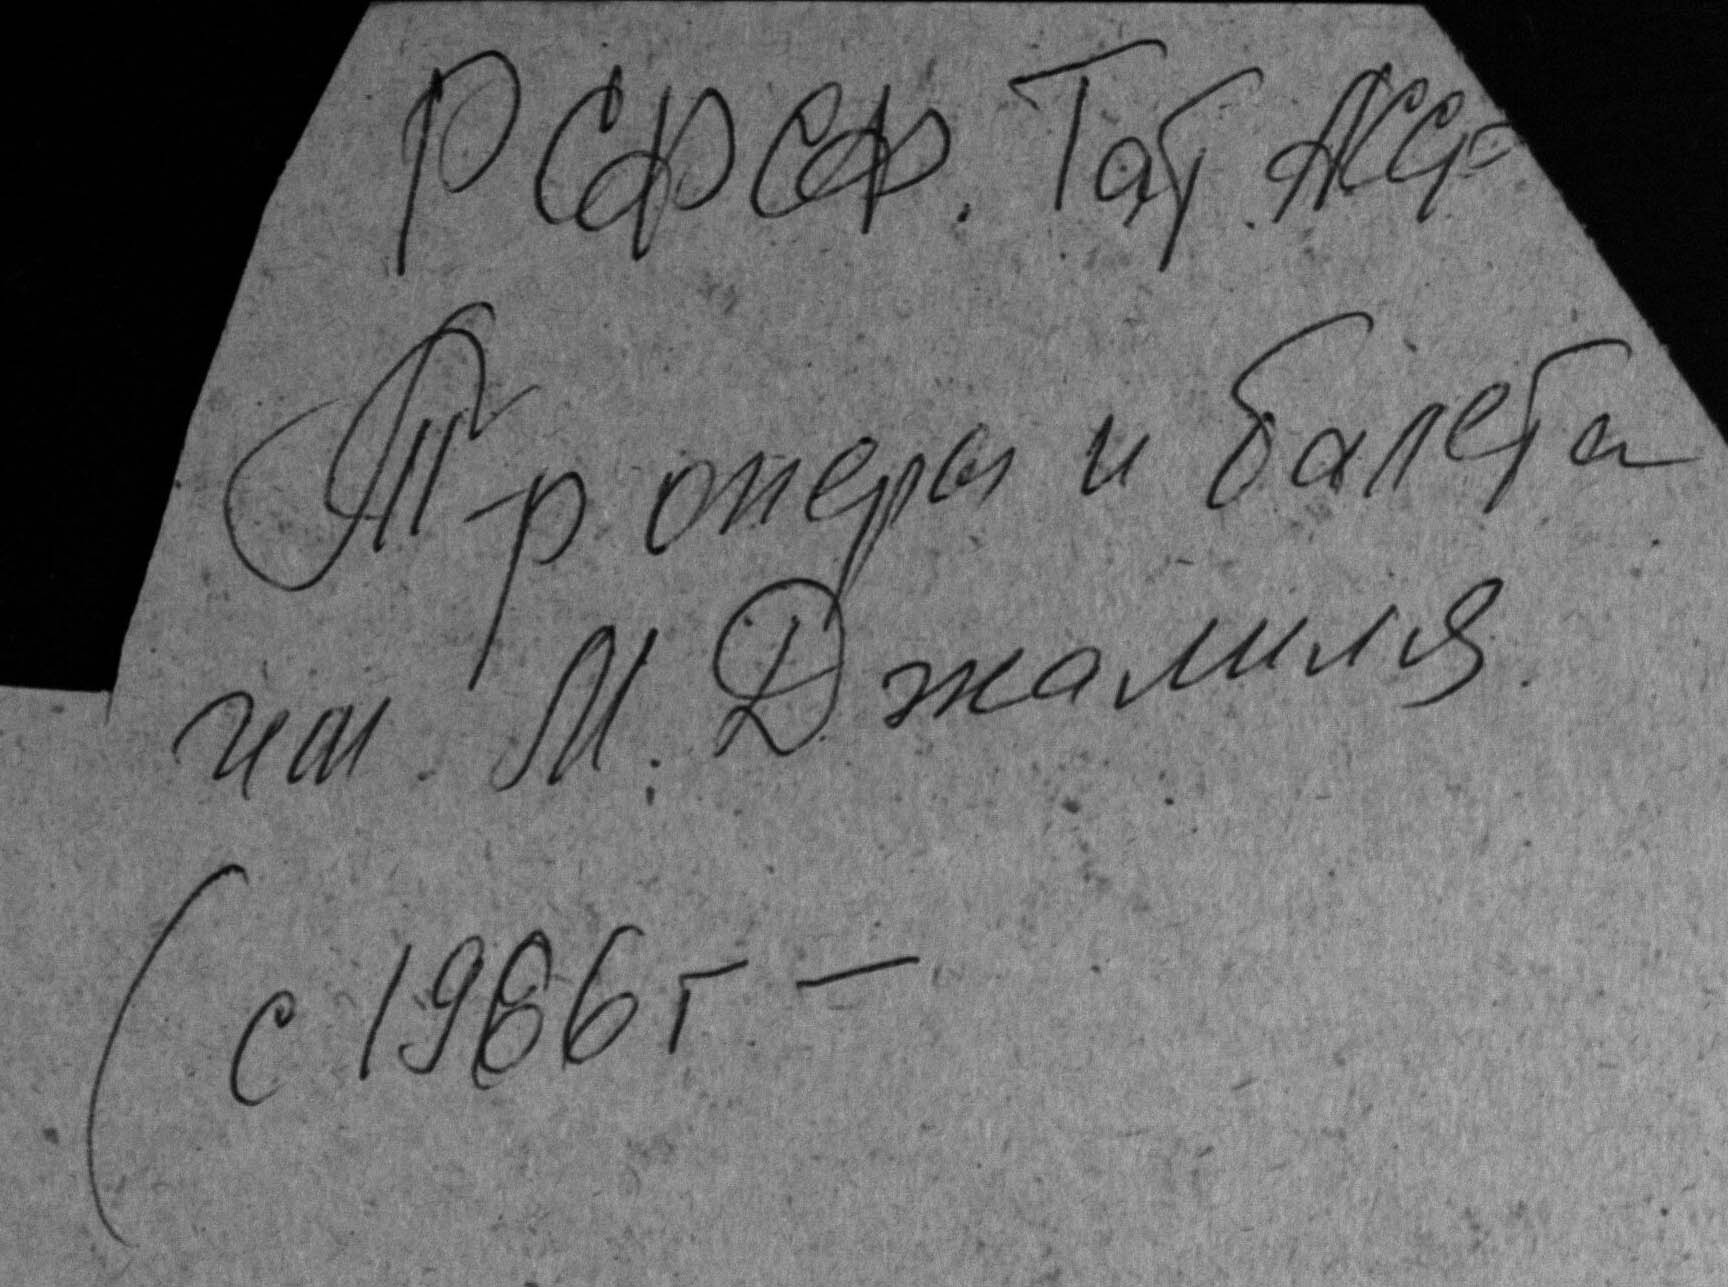 РСФСР. Тат. АССР
Т-р оперы и балета
им. М. Джалиля.
(с 1986 г —